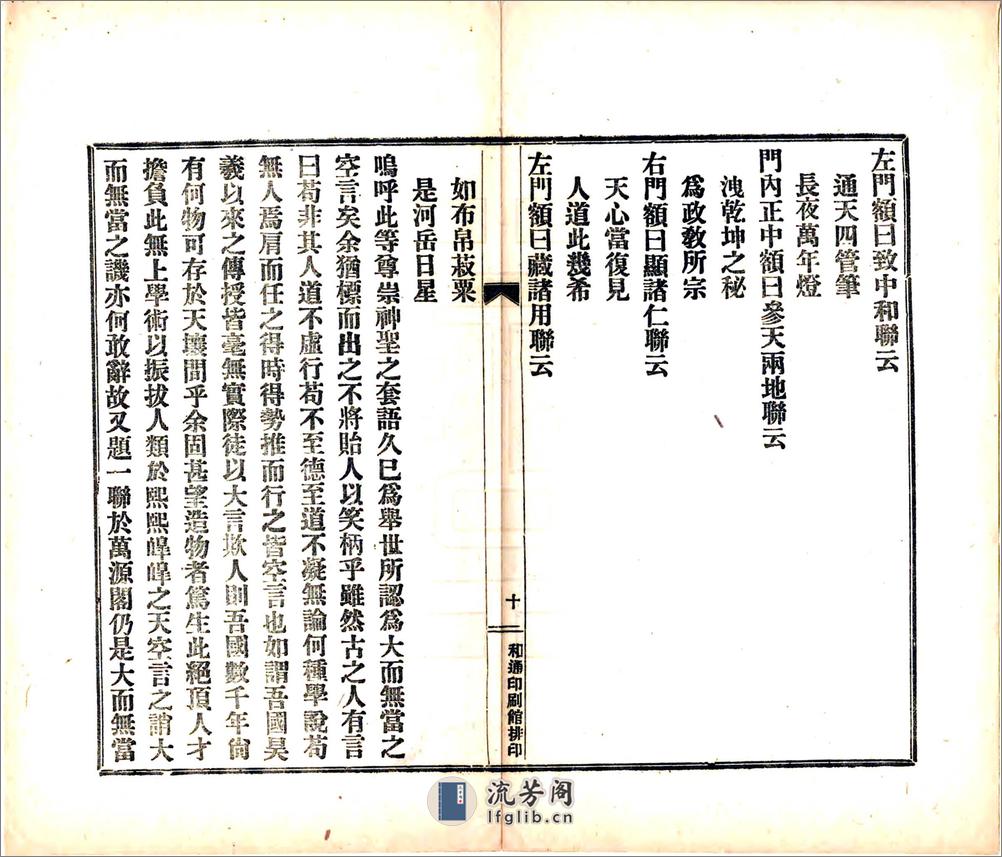 左門額曰致中和聯云
通天四管筆
長夜萬年燈
門內正中額曰參天兩地聯云
洩乾坤之秘
爲政敎所宗
右門額曰顯諸仁聯云
天心當復見
人道此幾希
左門額曰藏諸用聯云
十
和通印刷館排印
如布帛菽粟
是河岳日星
嗚呼此等尊崇神聖之套語久已爲舉世所認爲大而無當之
空言矣余猶標而出之不將貽人以笑柄乎雖然古之人有言
曰苟非其人道不虛行苟不至德至道不凝無論何種學說苟
無人焉肩而任之得時得勢推而行之皆空言也如謂吾國昊
羲以來之傳授皆毫無實際徒以大言欺人則吾國數千年尙
有何物可存於天壤間乎余固甚望造物者篤生此絕頂人才
擔負此無上學術以振拔人類於熙熙皥皥之天空言之誚大
而無當之譏亦何敢辭故又題一聯於萬源閣仍是大而無當
流芳阁
lfglib.cn